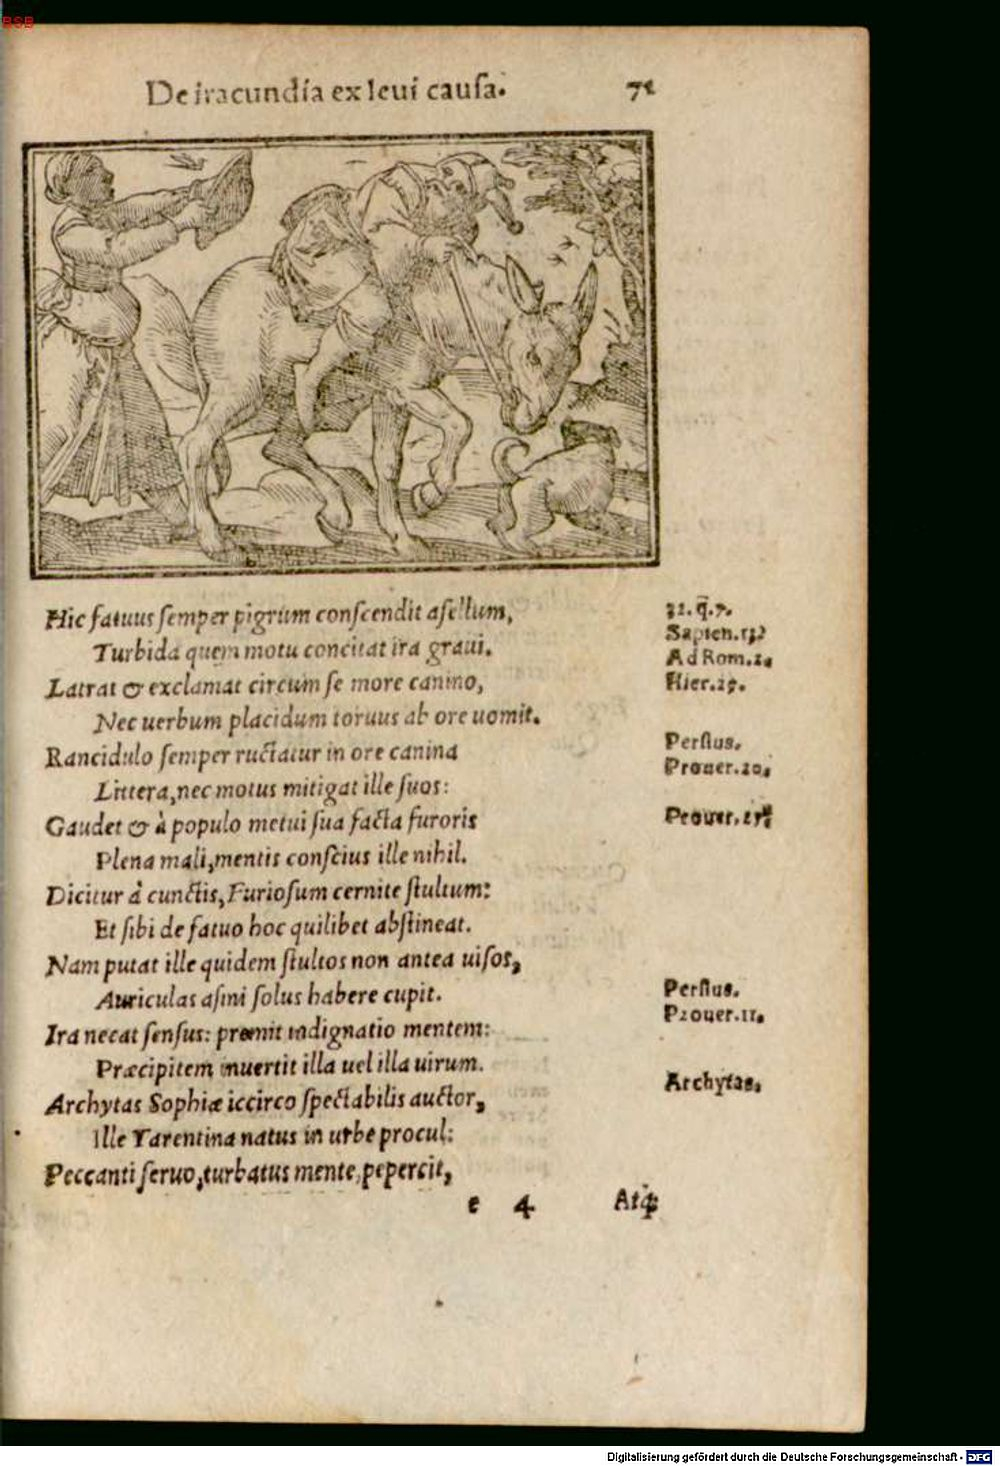 BSB
De iracundia ex leui cauſa. 71
Hic fatuus ſemper pigrum conſcendit aſellum,
Turbida quem motu concitat ira graui.
Latrat & exclamat circum ſe more canino,
Nec uerbum placidum toruus ab ore uomit.
Rancidulo ſemper ructatur in ore canina
Littera, nec motus mitigat ille ſuos:
Gaudet & à populo metui ſua facta furoris
Plena mali, mentis conſcius ille nihil.
Dicitur à cunctis, Furioſum cernite ſtultum:
Et ſibi de fatuo hoc quilibet abſtineat.
Nam putat ille quidem ſtultos non antea uiſos,
Auriculas aſini ſolus habere cupit.
Ira necat ſenſus: premit indignatio mentem:
Præcipitem inuertit illa uel illa uirum.
Archytas Sophiæ iccirco ſpectabilis auctor,
Ille Tarentina natus in urbe procul:
Peccanti ſeruo, turbatus mente, pepercit,
e 4 Atq́;
q̃.7.
Sapien.
Ad Rom.
Hier.
Perſius.
Prouer.20.
Prouer.
Perſius.
Prouer.11.
Archytas.
Digitalisierung gefördert durch die Deutsche Forschungsgemeinschaft - DFG